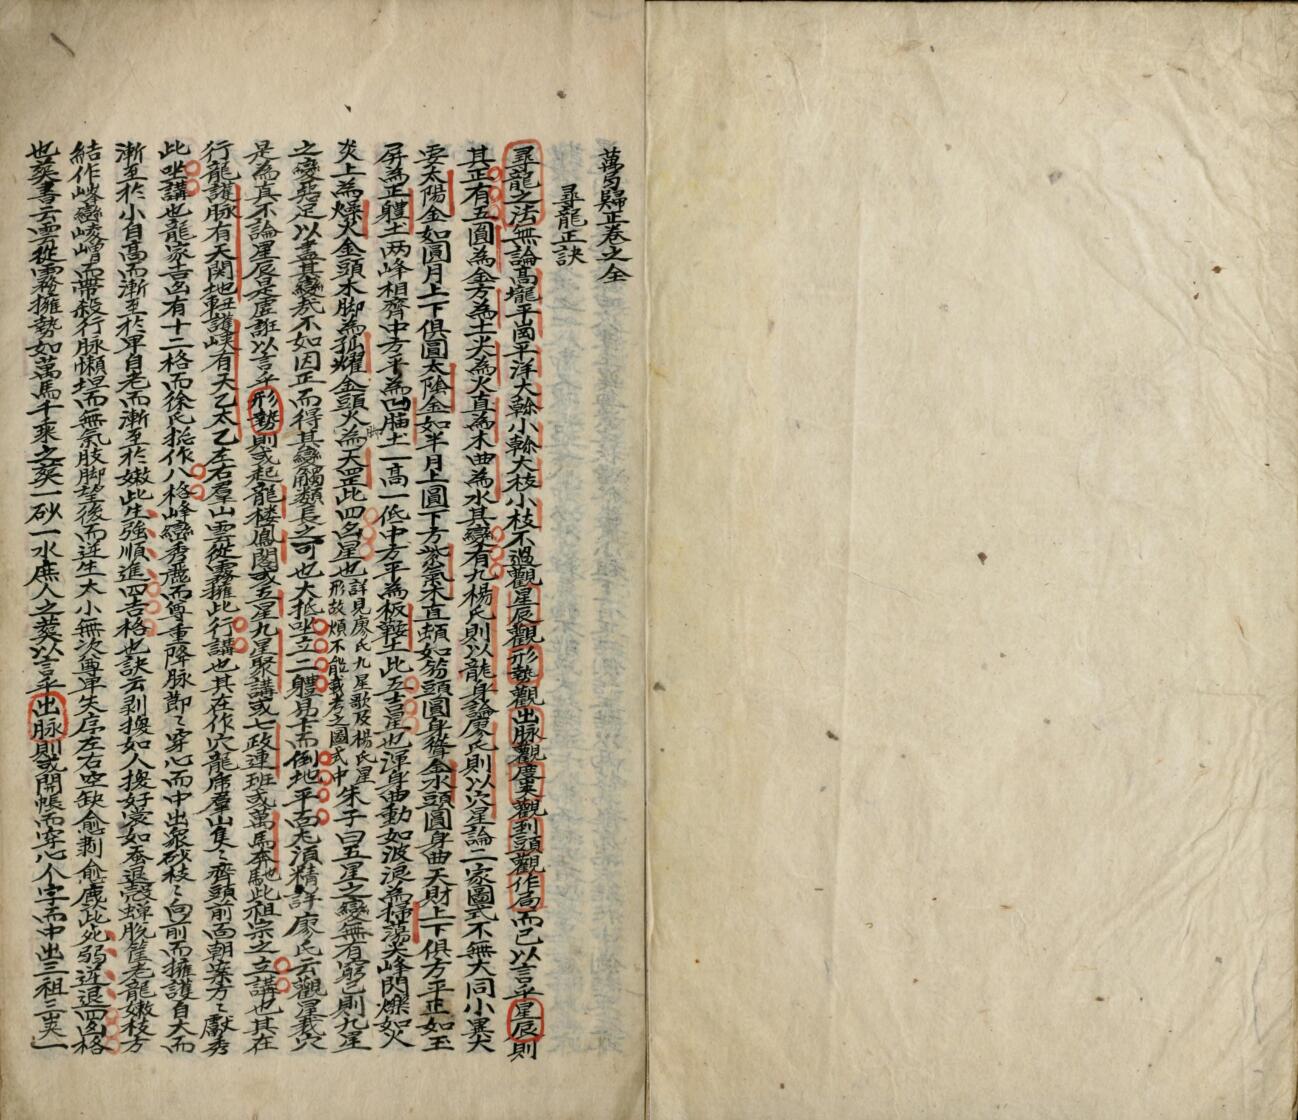 萬易歸正卷之全
尋龍正訣
尋龍之法無論高壠平崗平洋大幹小幹大枝小枝不過觀星辰觀形勢觀出脉觀廉夹觀到頭觀作局而已以言乎星辰則
其正有五圓為金方為土尖為火直為木曲為水其變有九楊氏則以龍身論廖氏則以穴星論二家圖式不無大同小異大
要太陽金如圓月上下俱圓太陰金如半月上圓下方紫氣木直蜵如笏頭圓身聳金水頭圓身曲天財上下俱方平正如玉
屏為正體土兩峰相齊中方平為凹腦土一高一低中方平為板鞍土此五吉星也渾身曲動如波浪為掃蕩尖峰閃爍如火
炎上為燥火金頭木脚為孤耀金頭火脚為天罡此四凶星也詳見廖氏九星歌及楊氏星形故煩不能載考之圖式中朱子曰五星之變無有窮已則九星
之變惡足以盡其變哉不如因正而得其變觸類長之可也大抵坐立二體易卞而倒地平面尤須精詳廖氏云觀星裁穴
是為真不論星辰是虛誑以言乎形勢則或起龍樓鳳閣或五星九星聚講或七政連班或萬馬奔馳此祖宗之立講也其在
行龍護脉有天関地軸護峽有天乙太乙左右羣山雲從霧擁此行講也其在作穴龍席羣山集〻齊頭前面朝案方〻獻秀
此坐講也龍家吉凶有十二格而徐氏摠作八格峰巒秀麗而尊重降脉節〻穿心而中出衆砂枝〻向前而擁護自大而
漸至於小自高而漸至於卑自老而漸至於嫩此生強順進四吉格也訣云剥換如人換好裳如蚕退殼蟬脫筐老龍嫩枝方
結作峰巒崚嶒而帶殺行脉懶坦而無氣肢脚望後而逆生大小無次尊卑失序左右空缺愈剥愈麁此死弱逆退四凶格
也葬書云雲從霧擁勢如萬馬千乘之葬一砂一水庶人之葬以言乎出脉則或開帳而穿心个字而中出三祖三夹一